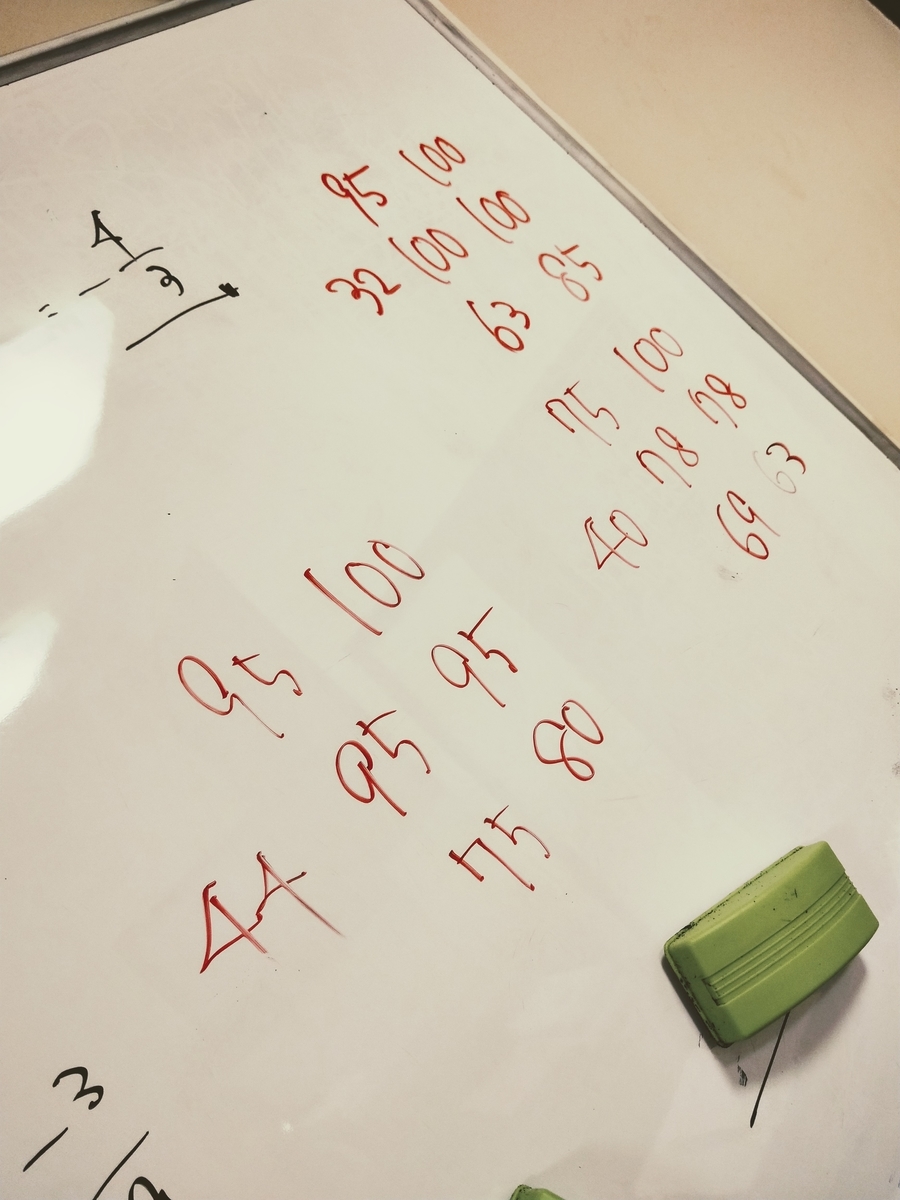 = - 4/3
95 100
32 100 100
63 85
75 100
40 78 78
69 63
95 100
95 95
44 75 80
- 3